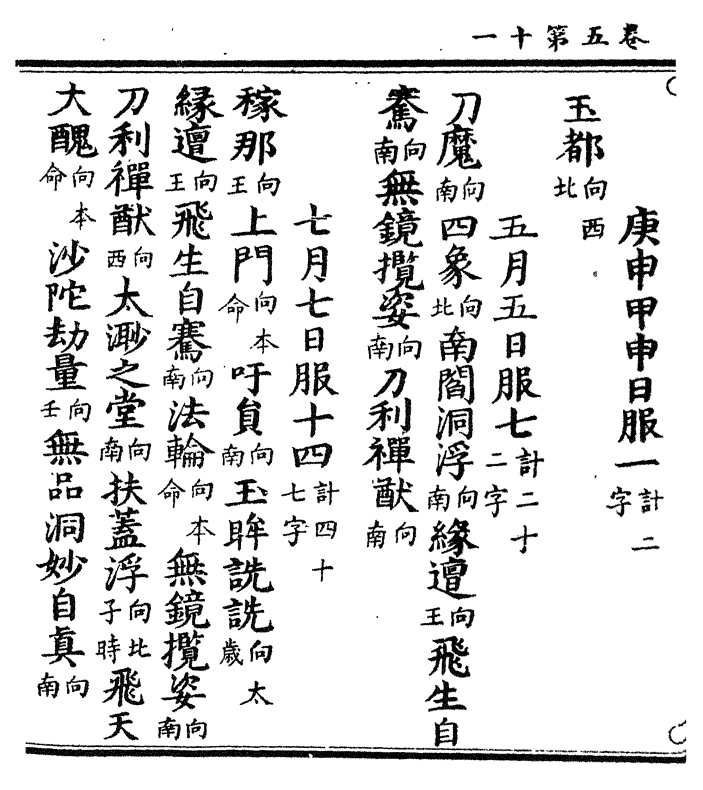 卷五第十一
庚申甲申日服一計二字
玉都向西北
五月五日服七計二十二字
刀魔向南四象向北南閻洞浮向南緣邅向王飛生自
騫向南無鏡攬姿向南刀利禪猷向南
七月七日服十四計四十七字
稼那向王上門向本命吁員向南玉眸詵詵向太歲
緣邅向王飛生自騫向南法輪向本命無鏡攬姿向南
刀利禪猷向西太渺之堂向南扶蓋浮向比子時飛天
大醜向本命沙陀劫量向壬無品洞妙自真向南